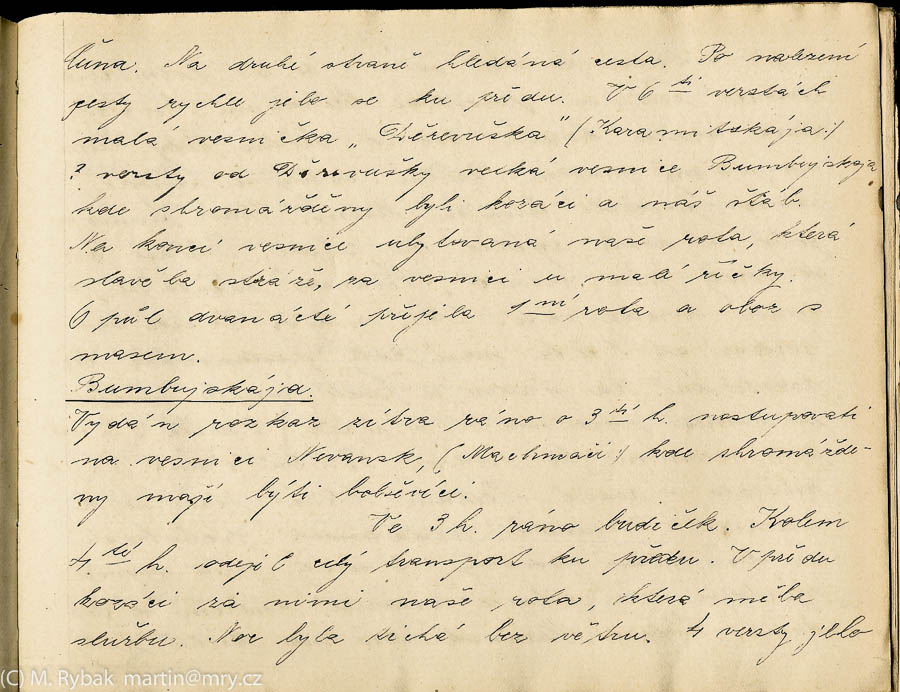 Čuna. Na druhé straně hledáná cesta. Po nalezení
cesty rychle jelo se ku předu. V 6 ti verstách
malá vesnička „Děrevuška" (Karamitskája:)
? versty od Děrevušky velká vesnice Bumbujskaja
kde shromážděny byli kozáci a náš štáb.
Na konci vesnice ubytovaná naše rota, která
stavěla stráže, za vesnici u malé říčky.
O půl dvanácté přijela 1 ní rota a oboz s
masem.
Bumbujskája.
Vydán rozkaz zítra ráno o 3 tí h. nastupovati
na vesnici Nevansk, (Machnači:) kde shromážde-
ny mají býti bolševíci.
Ve 3 h. ráno budíček. Kolem
4. té h. odjel celý transport ku předu. V předu
kozáci za nimi naše rota, která měla
službu. Noc byla tichá bez větru. 4 versty jelo
(C) M. Rybak martin@mry.cz